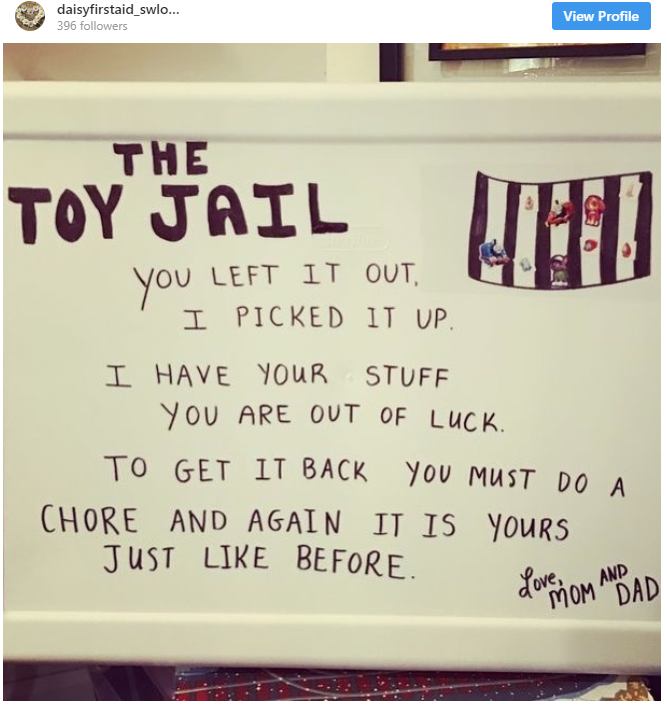 daisyfirstaid_swlo...
396 followers
View Profile
THE
TOY JAIL
YOU LEFT IT OUT,
I PICKED IT UP.
I HAVE YOUR STUFF
YOU ARE OUT OF LUCK.
TO GET IT BACK YOU MUST DO A
CHORE AND AGAIN IT IS YOURS
JUST LIKE BEFORE.
Love,
MOM AND DAD